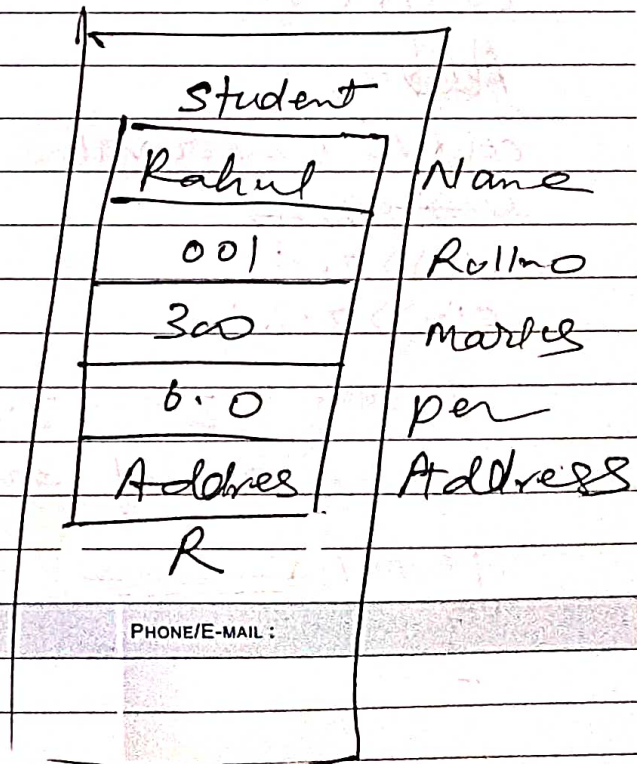 Student
Rahul Name
001 Rollno
300 Marks
6.0 per
Addres Address
R
PHONE/E-MAIL :